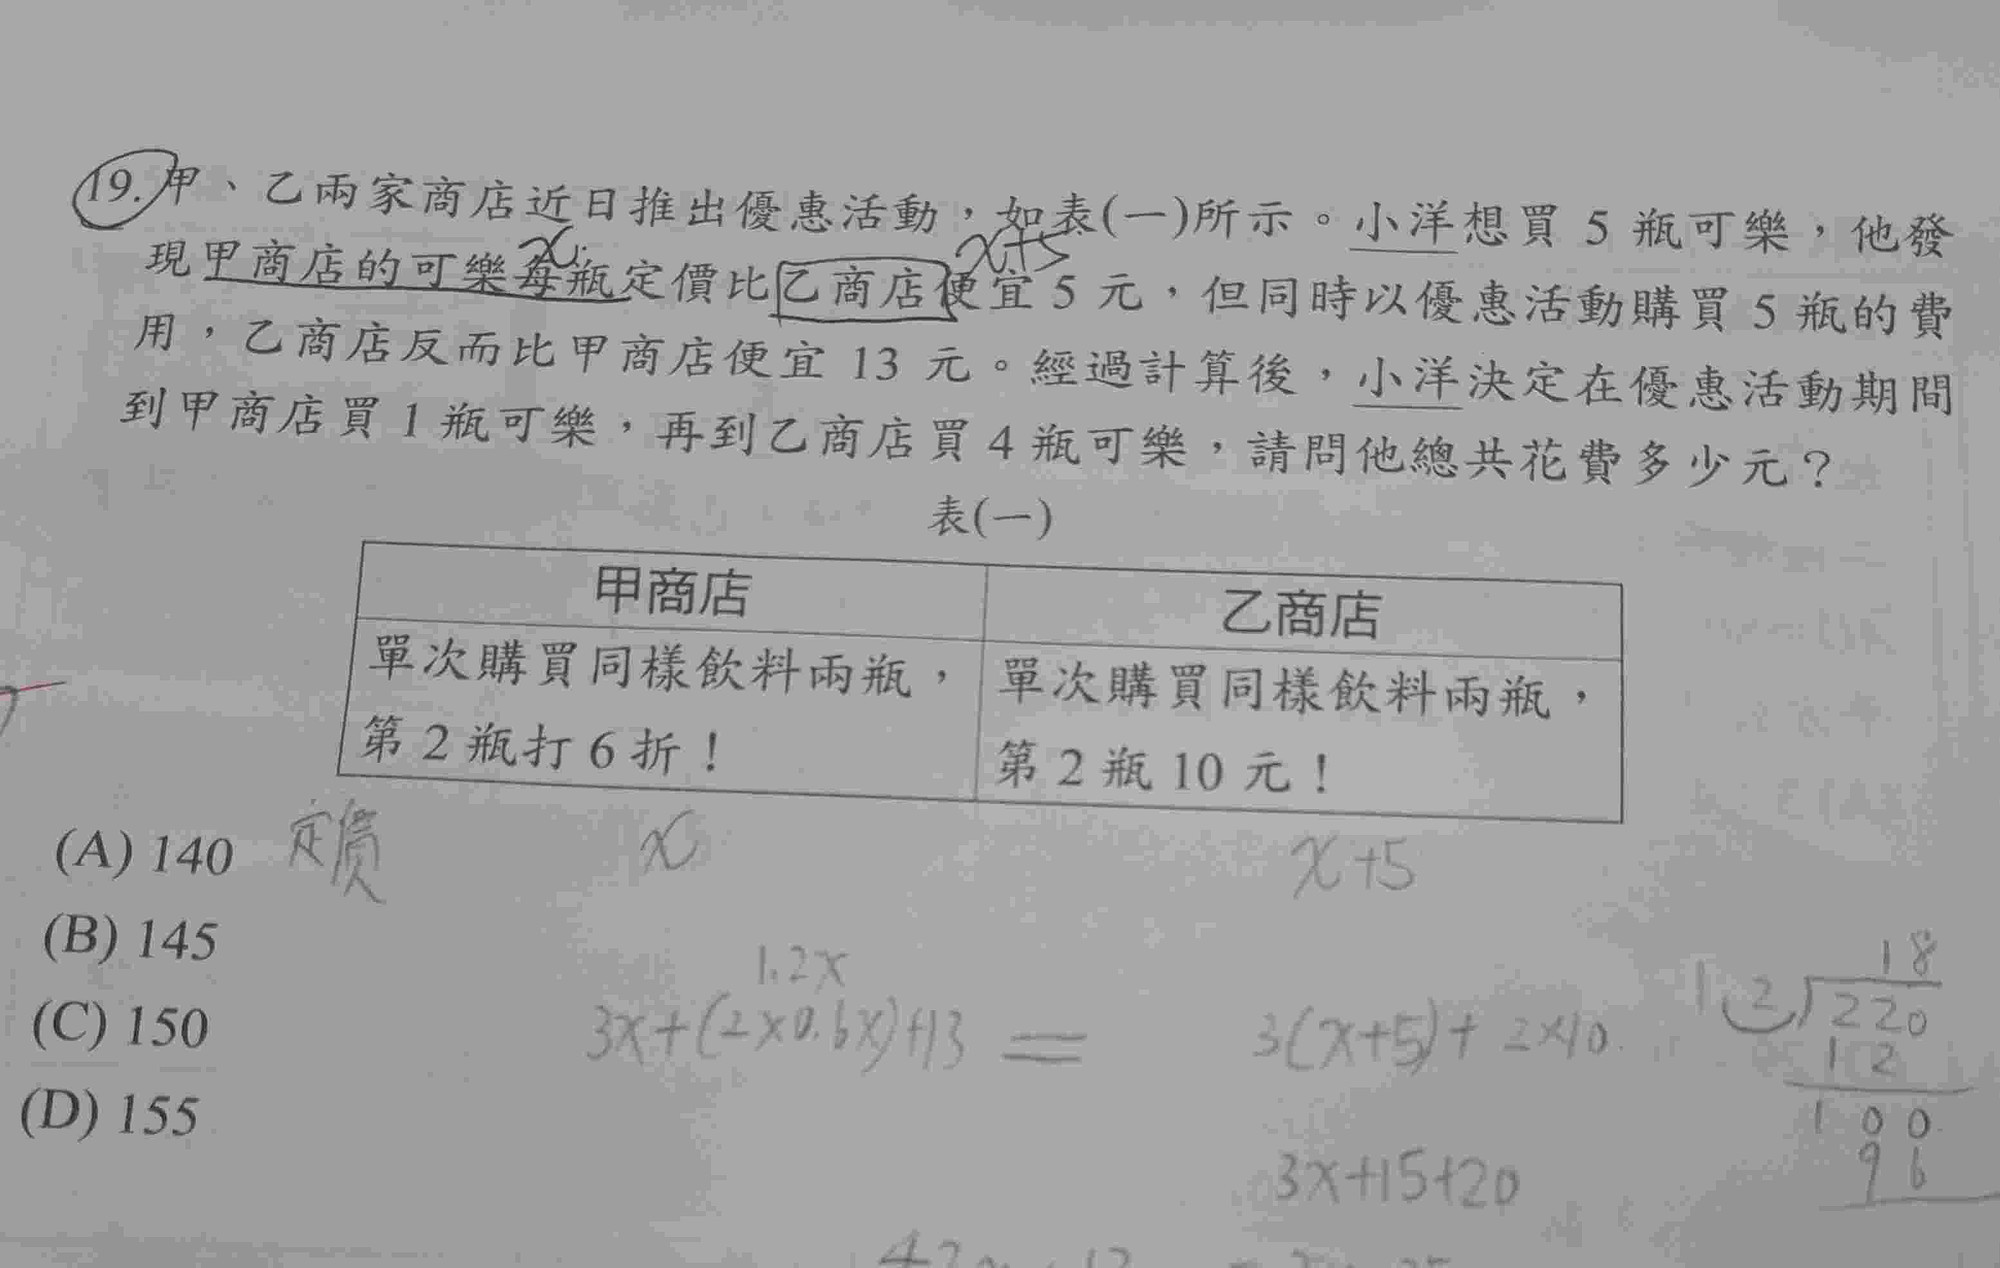 19.甲、乙兩家商店近日推出優惠活動,如表(一)所示。小洋想買 5 瓶可樂,他發
x x+5
現甲商店的可樂每瓶定價比乙商店便宜 5 元,但同時以優惠活動購買 5 瓶的費
用,乙商店反而比甲商店便宜 13 元。經過計算後,小洋決定在優惠活動期間
到甲商店買 1 瓶可樂,再到乙商店買 4 瓶可樂,請問他總共花費多少元?
表(一)
甲商店 乙商店
單次購買同樣飲料兩瓶, 單次購買同樣飲料兩瓶,
第 2 瓶打 6 折! 第 2 瓶 10 元!
(A) 140 定價 x x+5
(B) 145
1.2x
(C) 150 3x+(2×0.6x)+13 = 3(x+5)+2×10
(D) 155
3x+15+20
18
12)220
12
100
96